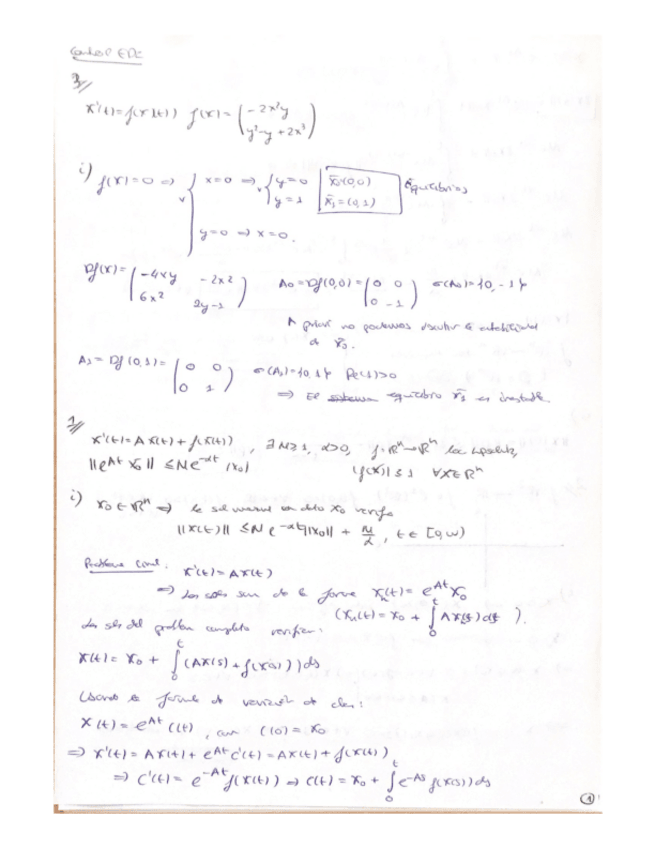 Control EDC
3//
x'(t)=f(x(t)) f(x)= ( -2x²y
y²-y+2x³ )
i) f(x)=0 ⇒ { x=0 ⇒ { y=0
y=1 x̄₀=(0,0)
x̄₁=(0,1) Equilibrios
y=0 ⇒ x=0.
Df(x)= ( -4xy -2x²
6x² 2y-1 ) A₀=Df(0,0)= ( 0 0
0 -1 ) σ(A₀)={0,-1}
A priori no podemos discutir la estabilidad
de x̄₀.
A₁=Df(0,1)= ( 0 0
0 1 ) σ(A₁)={0,1} Re(1)>0
⇒ El sistema equilibrio x̄₁ es inestable
1//
x'(t)=Ax(t)+f(x(t)) , ∃ M≥1, α>0, f:ℝⁿ→ℝⁿ loc. lipschitz,
||e^{At} x₀|| ≤ M e^{-αt} |x₀| |f(x)|≤1 ∀x∈ℝⁿ
i) x₀∈ℝⁿ ⇒ la sol maximal con dato x₀ verifica
||x(t)|| ≤ M e^{-αt}||x₀|| + M/α , t∈[0,ω)
Problema lineal. x'(t)=Ax(t)
⇒ Las soles son de la forma x_h(t)= e^{At}x₀
(x_h(t)=x₀+ ∫₀ᵗ Ax_h(s) ds ).
Las soles del problema completo verifican:
x(t)= x₀ + ∫₀ᵗ (Ax(s)+f(x(s)))ds
Usando la fórmula de variación de ctes:
x(t)= e^{At} C(t) , con C(0)=x₀
⇒ x'(t)=Ax(t)+e^{At}C'(t)=Ax(t)+f(x(t))
⇒ C'(t)= e^{-At}f(x(t)) ⇒ C(t)= x₀ + ∫₀ᵗ e^{-As} f(x(s))ds
1